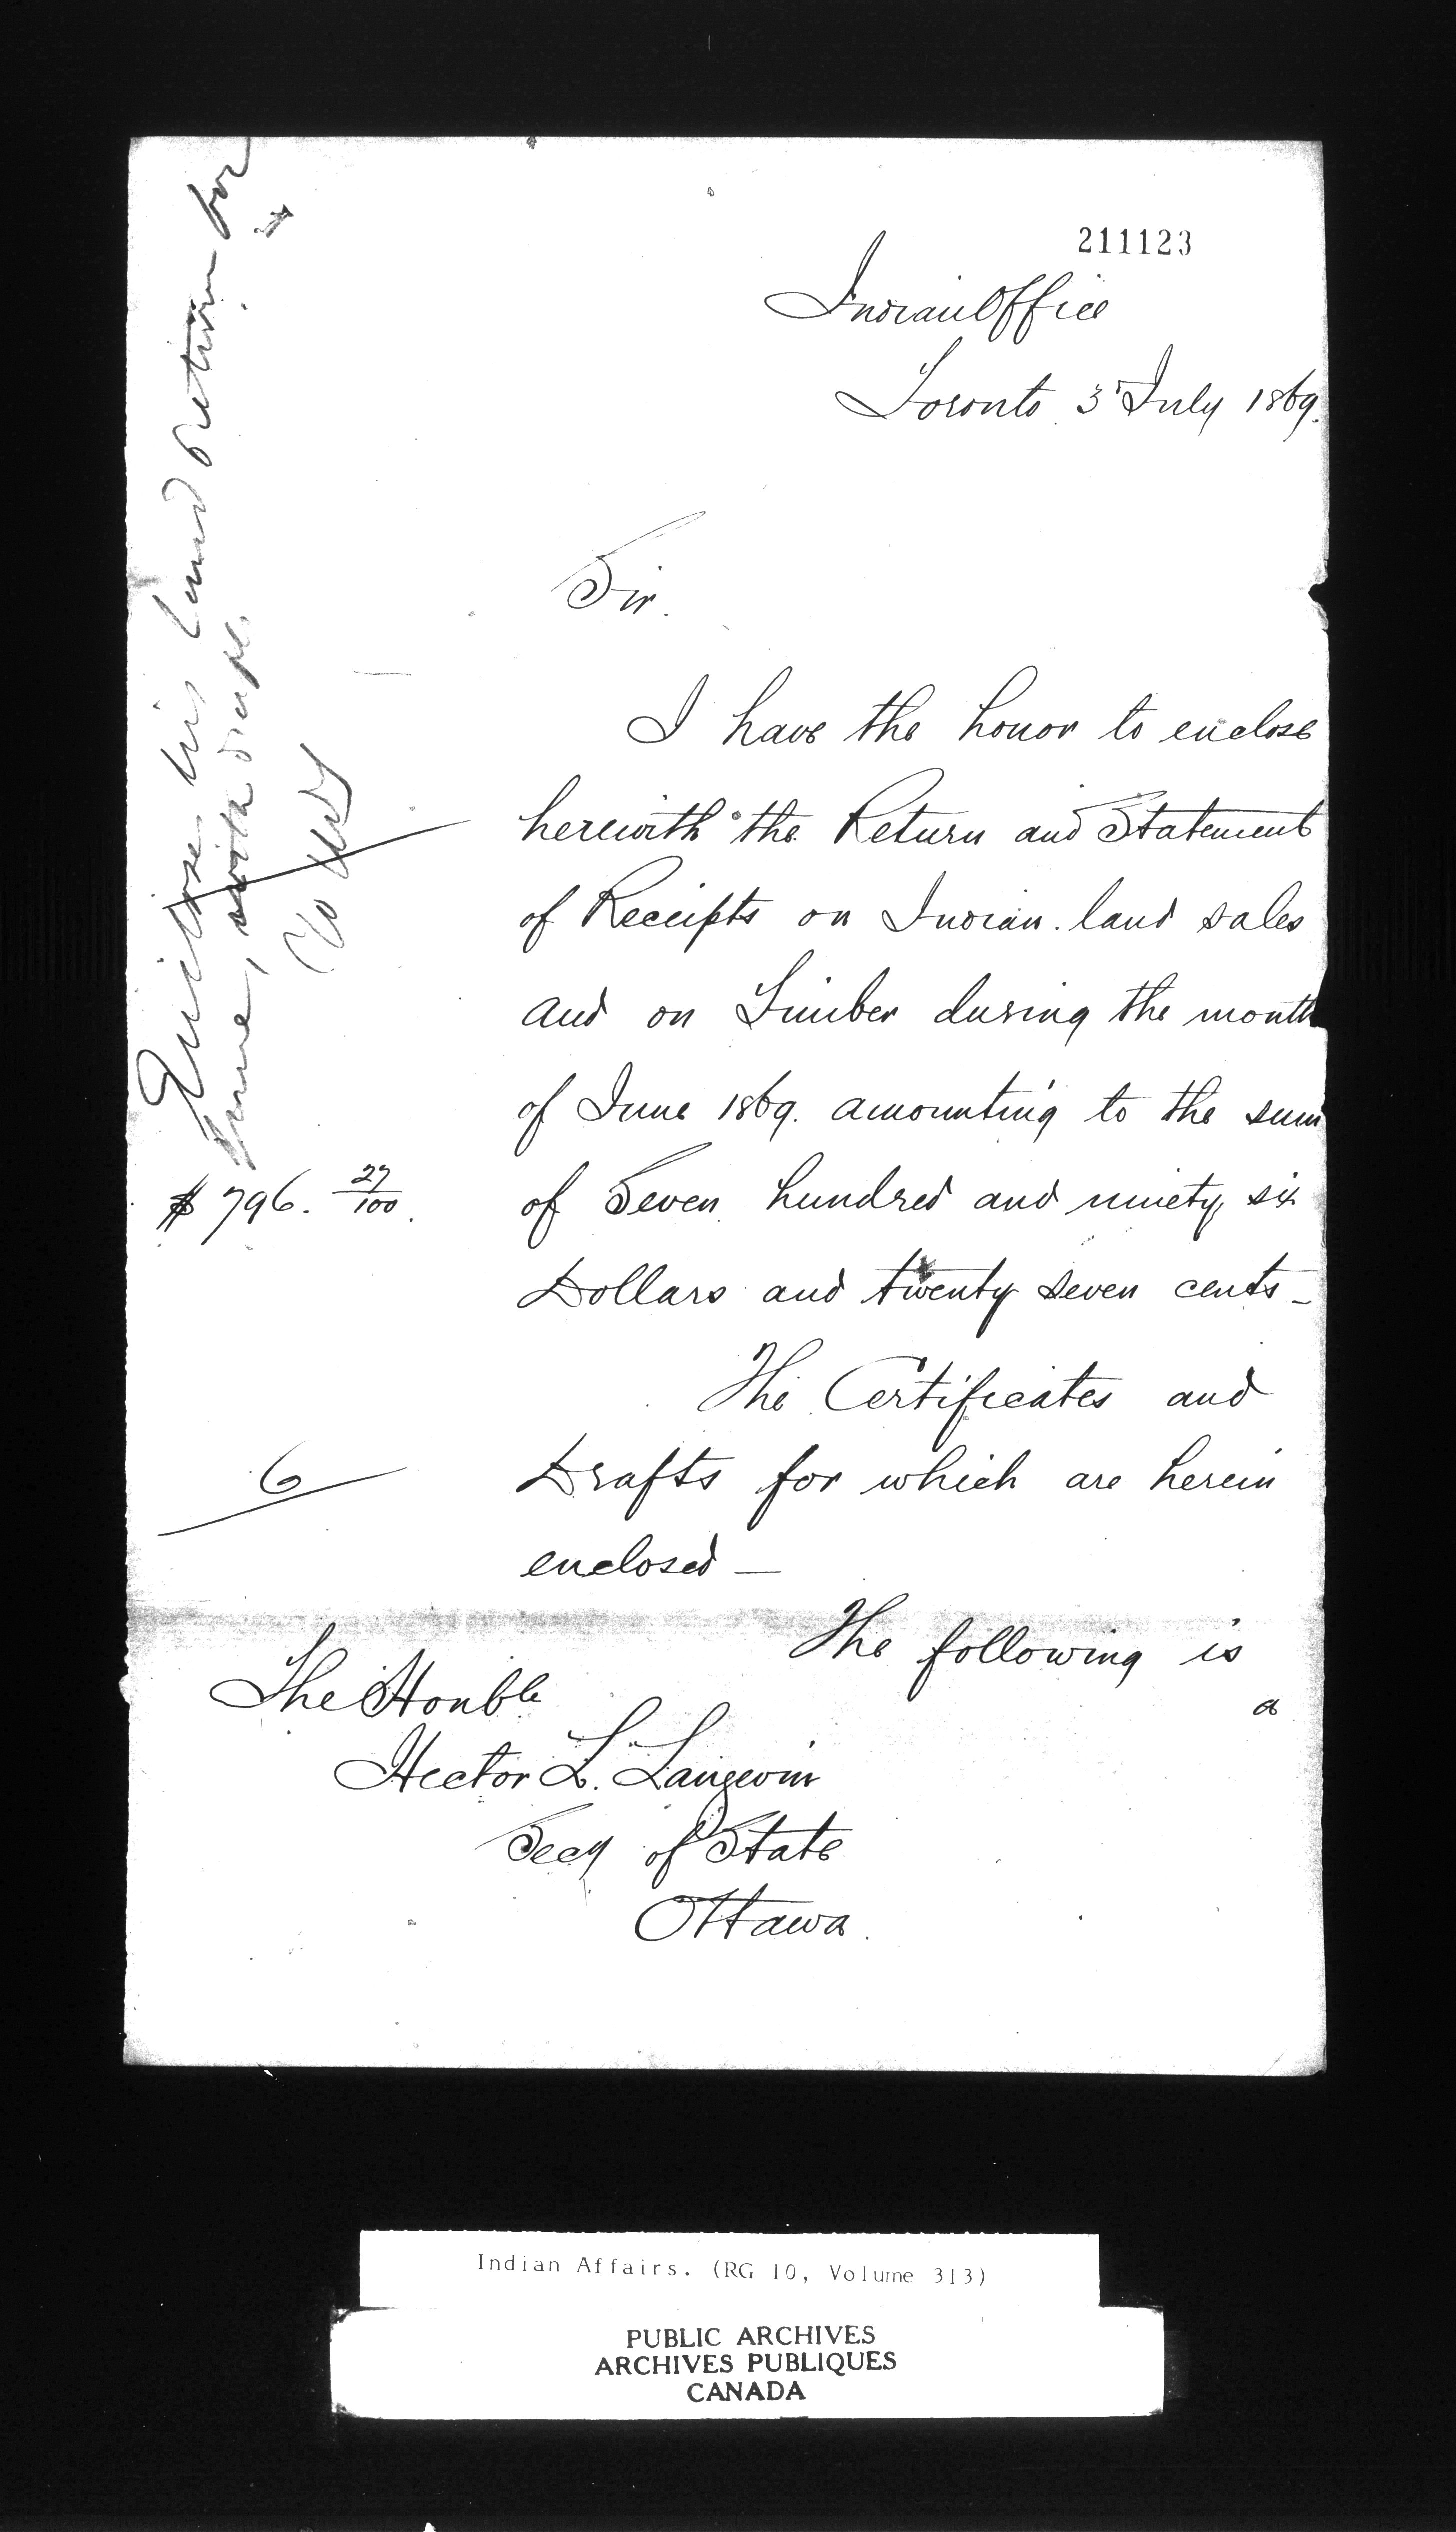 211123
Indian Office
Toronto 3 July 1869.
Sir.
I have the honor to enclose
herewith the Return and Statement
of Receipts on Indian land sales
and on Timber during the month
of June 1869. amounting to the sum
$796. 27/100.
of Seven hundred and ninety six
Dollars and twenty seven cents_
The Certificates and
6
Drafts for which are herein
enclosed —
The following is
a
The Honble
Hector L. Langevin
Secy of State
Ottawa.
Encloses his land return for
June, with
Indian Affairs. (RG 10, Volume 313)
PUBLIC ARCHIVES
ARCHIVES PUBLIQUES
CANADA